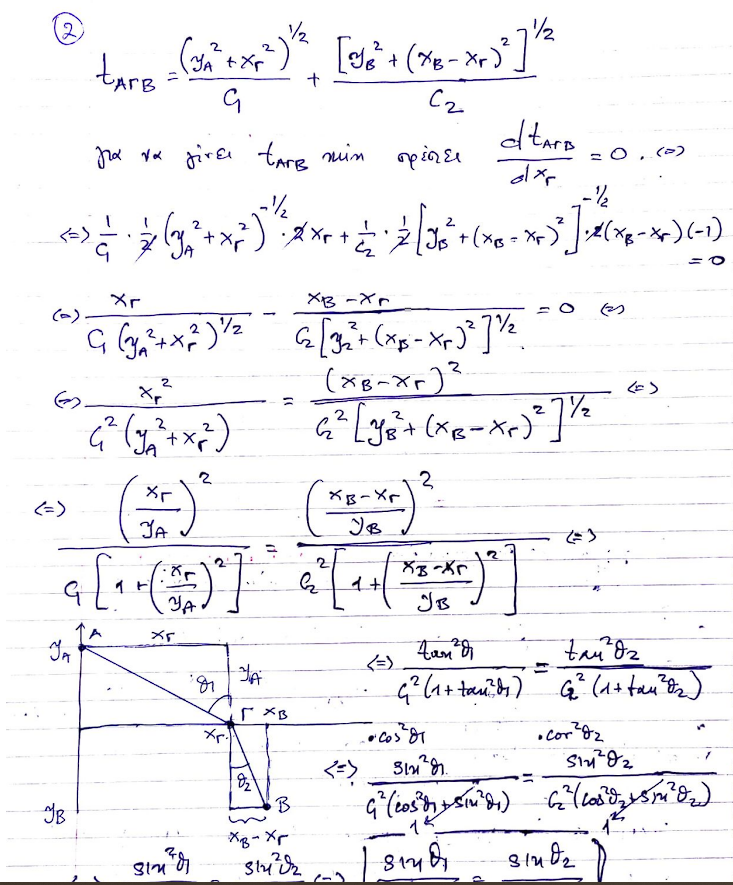 ②
t_ΑΓΒ = (y_A² + x_Γ²)^1/2 / C₁ + [y_B² + (x_B - x_Γ)²]^1/2 / C₂
για να γίνει t_ΑΓΒ min πρέπει dt_ΑΓΒ / dx_Γ = 0. (=>
<=> 1/C₁ · 1/2 (y_A² + x_Γ²)^-1/2 · 2x_Γ + 1/C₂ · 1/2 [y_B² + (x_B - x_Γ)²]^-1/2 · 2(x_B - x_Γ)(-1)
= 0
(=) x_Γ / C₁(y_A² + x_Γ²)^1/2 - x_B - x_Γ / C₂[y₂² + (x_B - x_Γ)²]^1/2 = 0 (=>
(=> x_Γ² / C₁²(y_A² + x_Γ²) = (x_B - x_Γ)² / C₂²[y_B² + (x_B - x_Γ)²]^1/2 <=>
<=> (x_Γ / y_A)² / C₁[1 + (x_Γ / y_A)²] = (x_B - x_Γ / y_B)² / C₂²[1 + (x_B - x_Γ / y_B)²] <=>
y_A A x_Γ
θ₁ y_A
Γ x_B
x_Γ
θ₂
y_B B
x_B - x_Γ
<=> tan²θ₁ / C₁²(1 + tan²θ₁) = tan²θ₂ / C₂²(1 + tan²θ₂)
·cos²θ₁ ·cos²θ₂
<=> sin²θ₁ / C₁²(cos²θ₁ + sin²θ₁) = sin²θ₂ / C₂²(cos²θ₂ + sin²θ₂)
1 1
sin²θ₁ = sin²θ₂ (=> sinθ₁ = sinθ₂